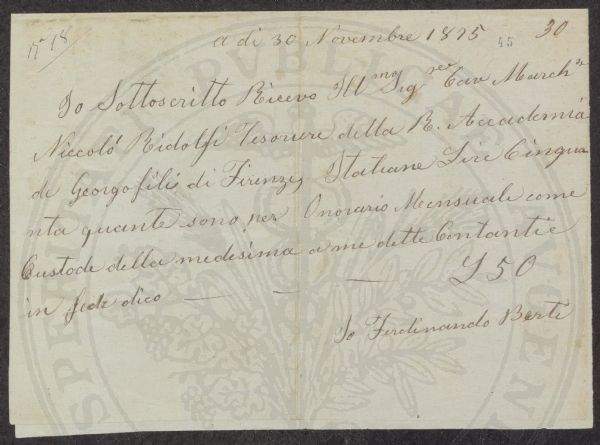 n° 18
a di 30 Novembre 1875 45 30
Io Sottoscritto Ricevo Ill^mo Sig^re Cav March^e
Niccoló Ridolfi Tesoriere della R. Accademia
de Georgofili di Firenze, Italiane Lire Cinqua
nta quante sono per Onorario Mensuale come
Custode della medesima a me dette Contanti e
in fede dico — — — £ 50
Io Ferdinando Berti
PROSPERITATI PUBLICAE AUGENDAE